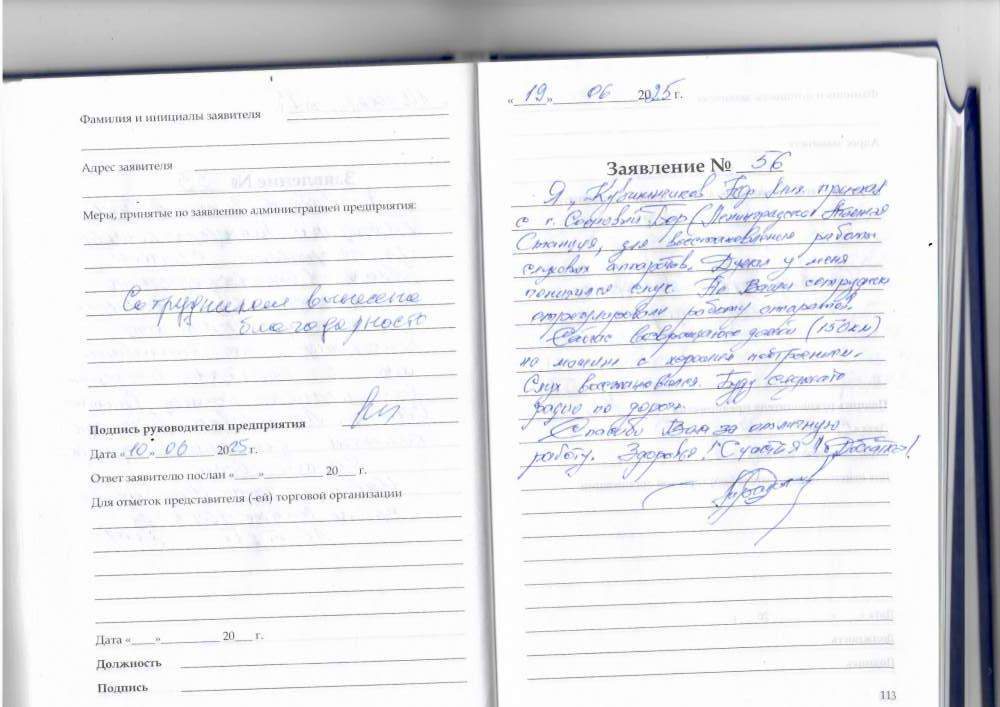 Фамилия и инициалы заявителя
Адрес заявителя
Меры, принятые по заявлению администрацией предприятия:
Сотрудникам вынесена
благодарность
Подпись руководителя предприятия
Дата «10» 06 2025 г.
Ответ заявителю послан «___»__________ 20___ г.
Для отметок представителя (-ей) торговой организации
Дата «____»__________ 20___ г.
Должность
Подпись
«19» 06 2025 г.
Заявление № 56
Я, приехал
с г. Сосновый Бор (Ленинградская Атомная
Станция, для восстановления работы
слуховых аппаратов. у меня
понизился слух. Но Ваши сотрудники
отрегулировали работу аппаратов.
Сейчас возвращаюсь домой (150 км)
на машине с хорошим настроением.
Слух восстановился. Буду слушать
радио по дороге.
Спасибо Вам за отличную
работу. Здоровья! Счастья!
113